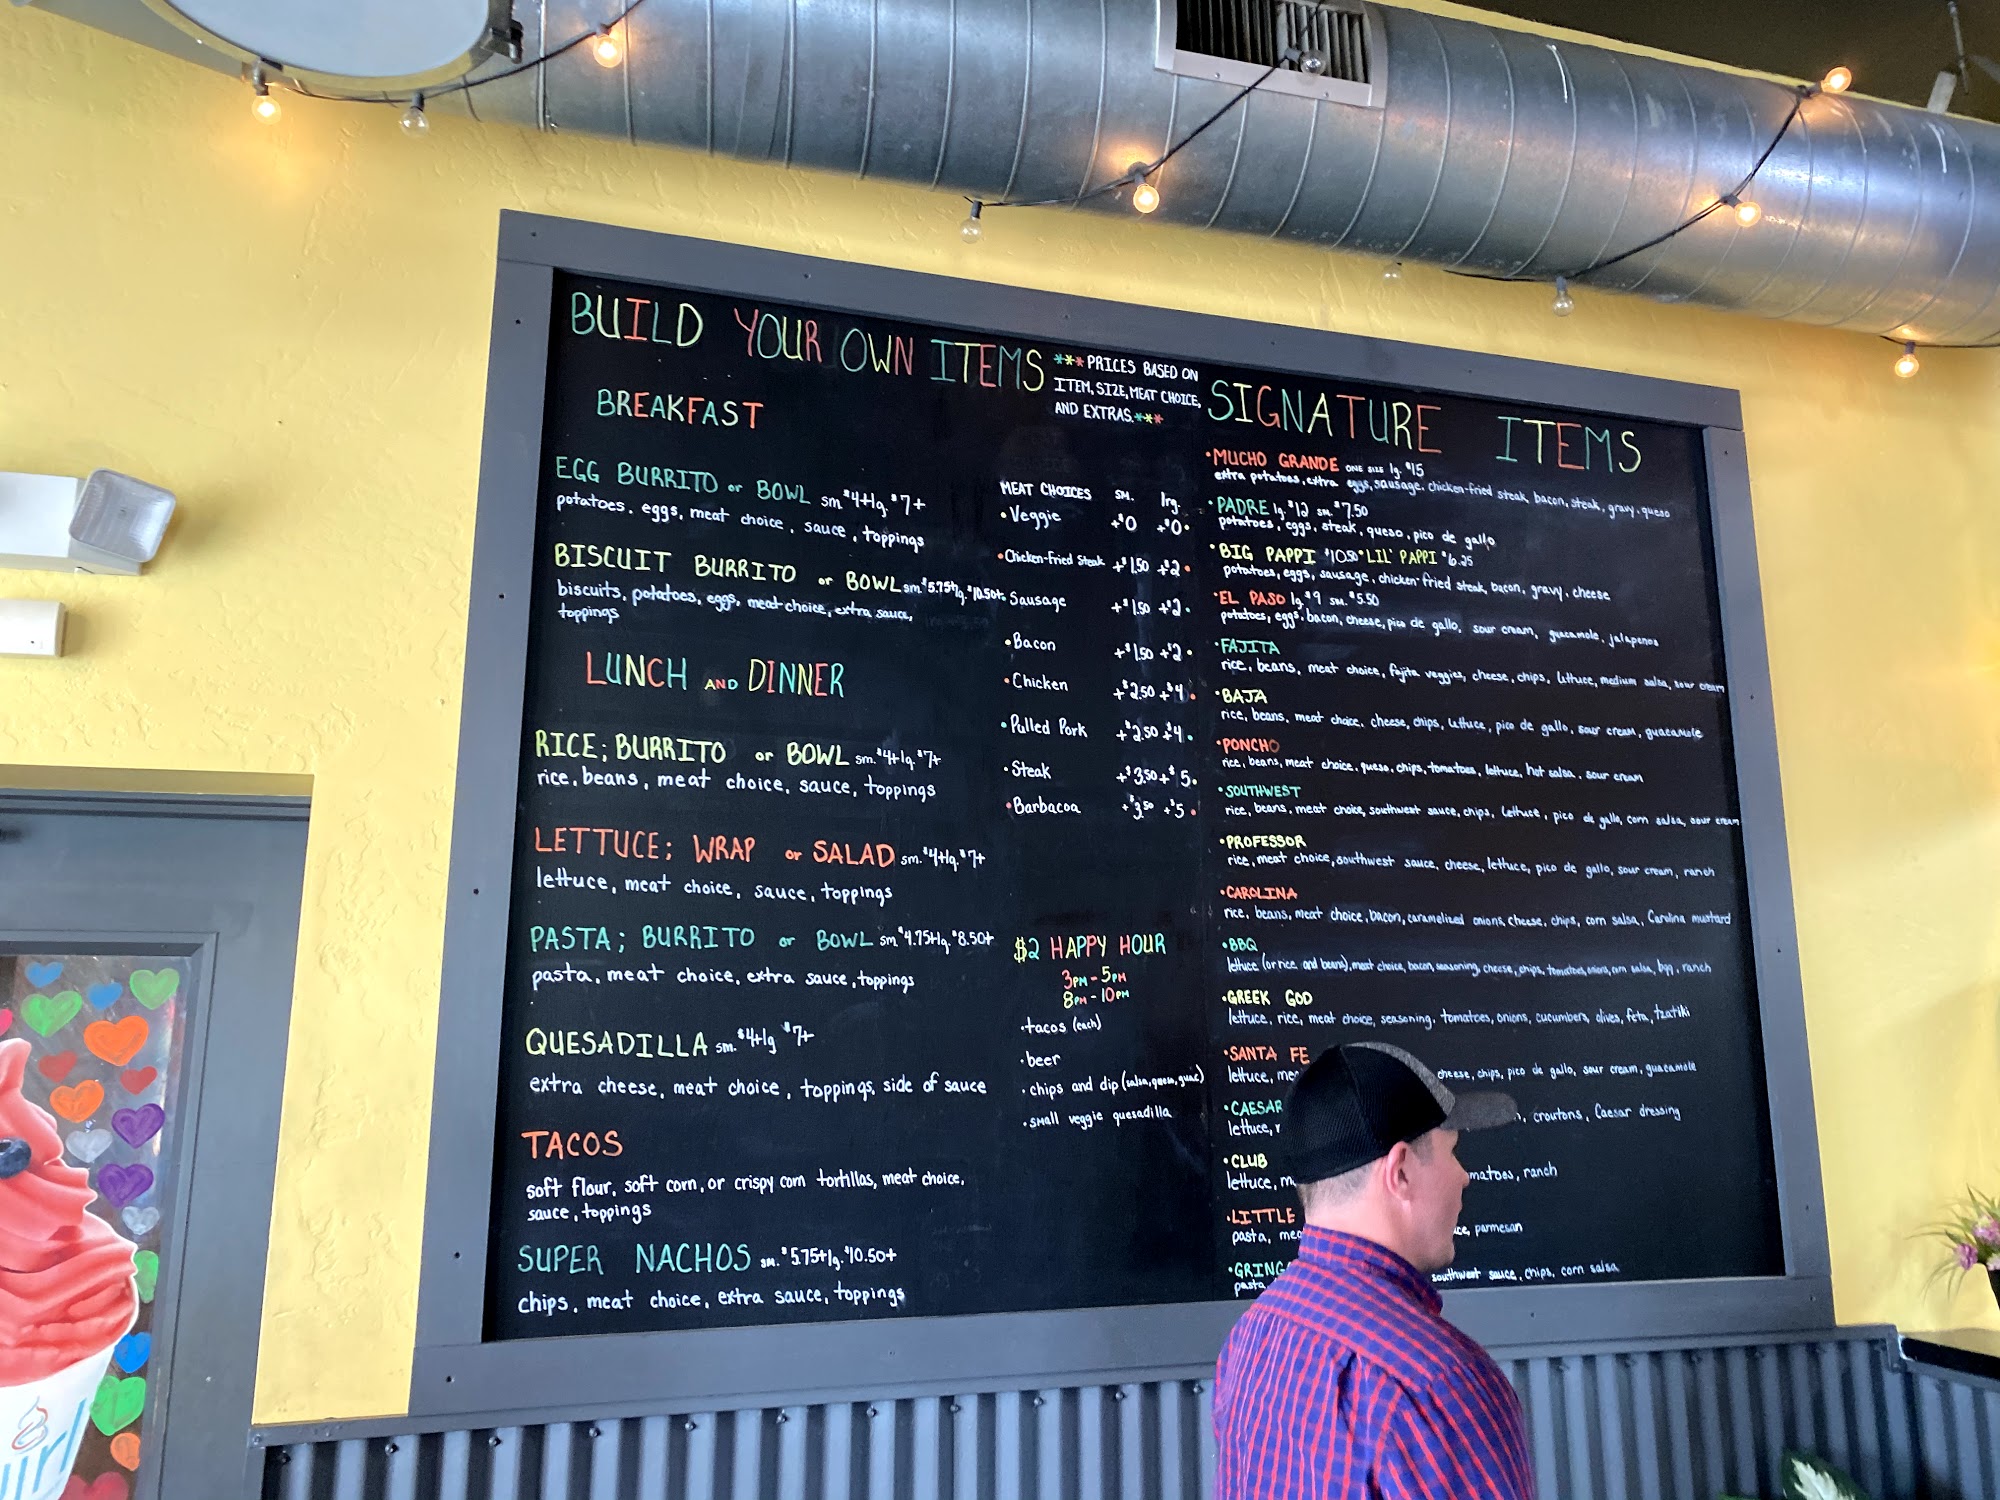 BUILD YOUR OWN ITEMS
***PRICES BASED ON
ITEM, SIZE, MEAT CHOICE,
AND EXTRAS.***
BREAKFAST
EGG BURRITO or BOWL sm $4+lg. $7+
potatoes, eggs, meat choice, sauce, toppings
BISCUIT BURRITO or BOWL sm. $5.75+lg. $10.50+
biscuits, potatoes, eggs, meat choice, extra sauce,
toppings
LUNCH AND DINNER
RICE; BURRITO or BOWL sm. $4+lg. $7+
rice, beans, meat choice, sauce, toppings
LETTUCE; WRAP or SALAD sm. $4+lg. $7+
lettuce, meat choice, sauce, toppings
PASTA; BURRITO or BOWL sm $4.75+lg. $8.50+
pasta, meat choice, extra sauce, toppings
QUESADILLA sm. $4+lg $7+
extra cheese, meat choice, toppings, side of sauce
TACOS
soft flour, soft corn, or crispy corn tortillas, meat choice,
sauce, toppings
SUPER NACHOS sm. $5.75+lg. $10.50+
chips, meat choice, extra sauce, toppings
MEAT CHOICES SM. lrg.
•Veggie +$0 +$0•
•Chicken-Fried Steak +$1.50 +$2•
Sausage +$1.50 +$2•
•Bacon +$1.50 +$2•
•Chicken +$2.50 +$4•
•Pulled Pork +$2.50 +$4•
•Steak +$3.50 +$5•
•Barbacoa +$3.50 +$5•
$2 HAPPY HOUR
3PM - 5PM
8PM - 10PM
•tacos (each)
•beer
•chips and dip (salsa, queso, guac)
•small veggie quesadilla
SIGNATURE ITEMS
•MUCHO GRANDE ONE SIZE lg. $15
extra potatoes, extra eggs, sausage, chicken-fried steak, bacon, steak, gravy, queso
•PADRE lg. $12 sm. $7.50
potatoes, eggs, steak, queso, pico de gallo
•BIG PAPPI $10.50 •LIL' PAPPI $6.25
potatoes, eggs, sausage, chicken-fried steak, bacon, gravy, cheese
•EL PASO lg. $9 sm. $5.50
potatoes, eggs, bacon, cheese, pico de gallo, sour cream, guacamole, jalapenos
•FAJITA
rice, beans, meat choice, fajita veggies, cheese, chips, lettuce, medium salsa, sour cream
•BAJA
rice, beans, meat choice, cheese, chips, lettuce, pico de gallo, sour cream, guacamole
•PONCHO
rice, beans, meat choice, queso, chips, tomatoes, lettuce, hot salsa, sour cream
•SOUTHWEST
rice, beans, meat choice, southwest sauce, chips, lettuce, pico de gallo, corn salsa, sour cream
•PROFESSOR
rice, meat choice, southwest sauce, cheese, lettuce, pico de gallo, sour cream, ranch
•CAROLINA
rice, beans, meat choice, bacon, caramelized onions, cheese, chips, corn salsa, Carolina mustard
•BBQ
lettuce (or rice and beans), meat choice, bacon, seasoning, cheese, chips, tomatoes, onions, corn salsa, bbq, ranch
•GREEK GOD
lettuce, rice, meat choice, seasoning, tomatoes, onions, cucumbers, olives, feta, tzatiki
•SANTA FE
lettuce, cheese, chips, pico de gallo, sour cream, guacamole
•CAESAR
lettuce, croutons, Caesar dressing
•CLUB
lettuce, ranch
•LITTLE
pasta, parmesan
pasta, southwest sauce, chips, corn salsa